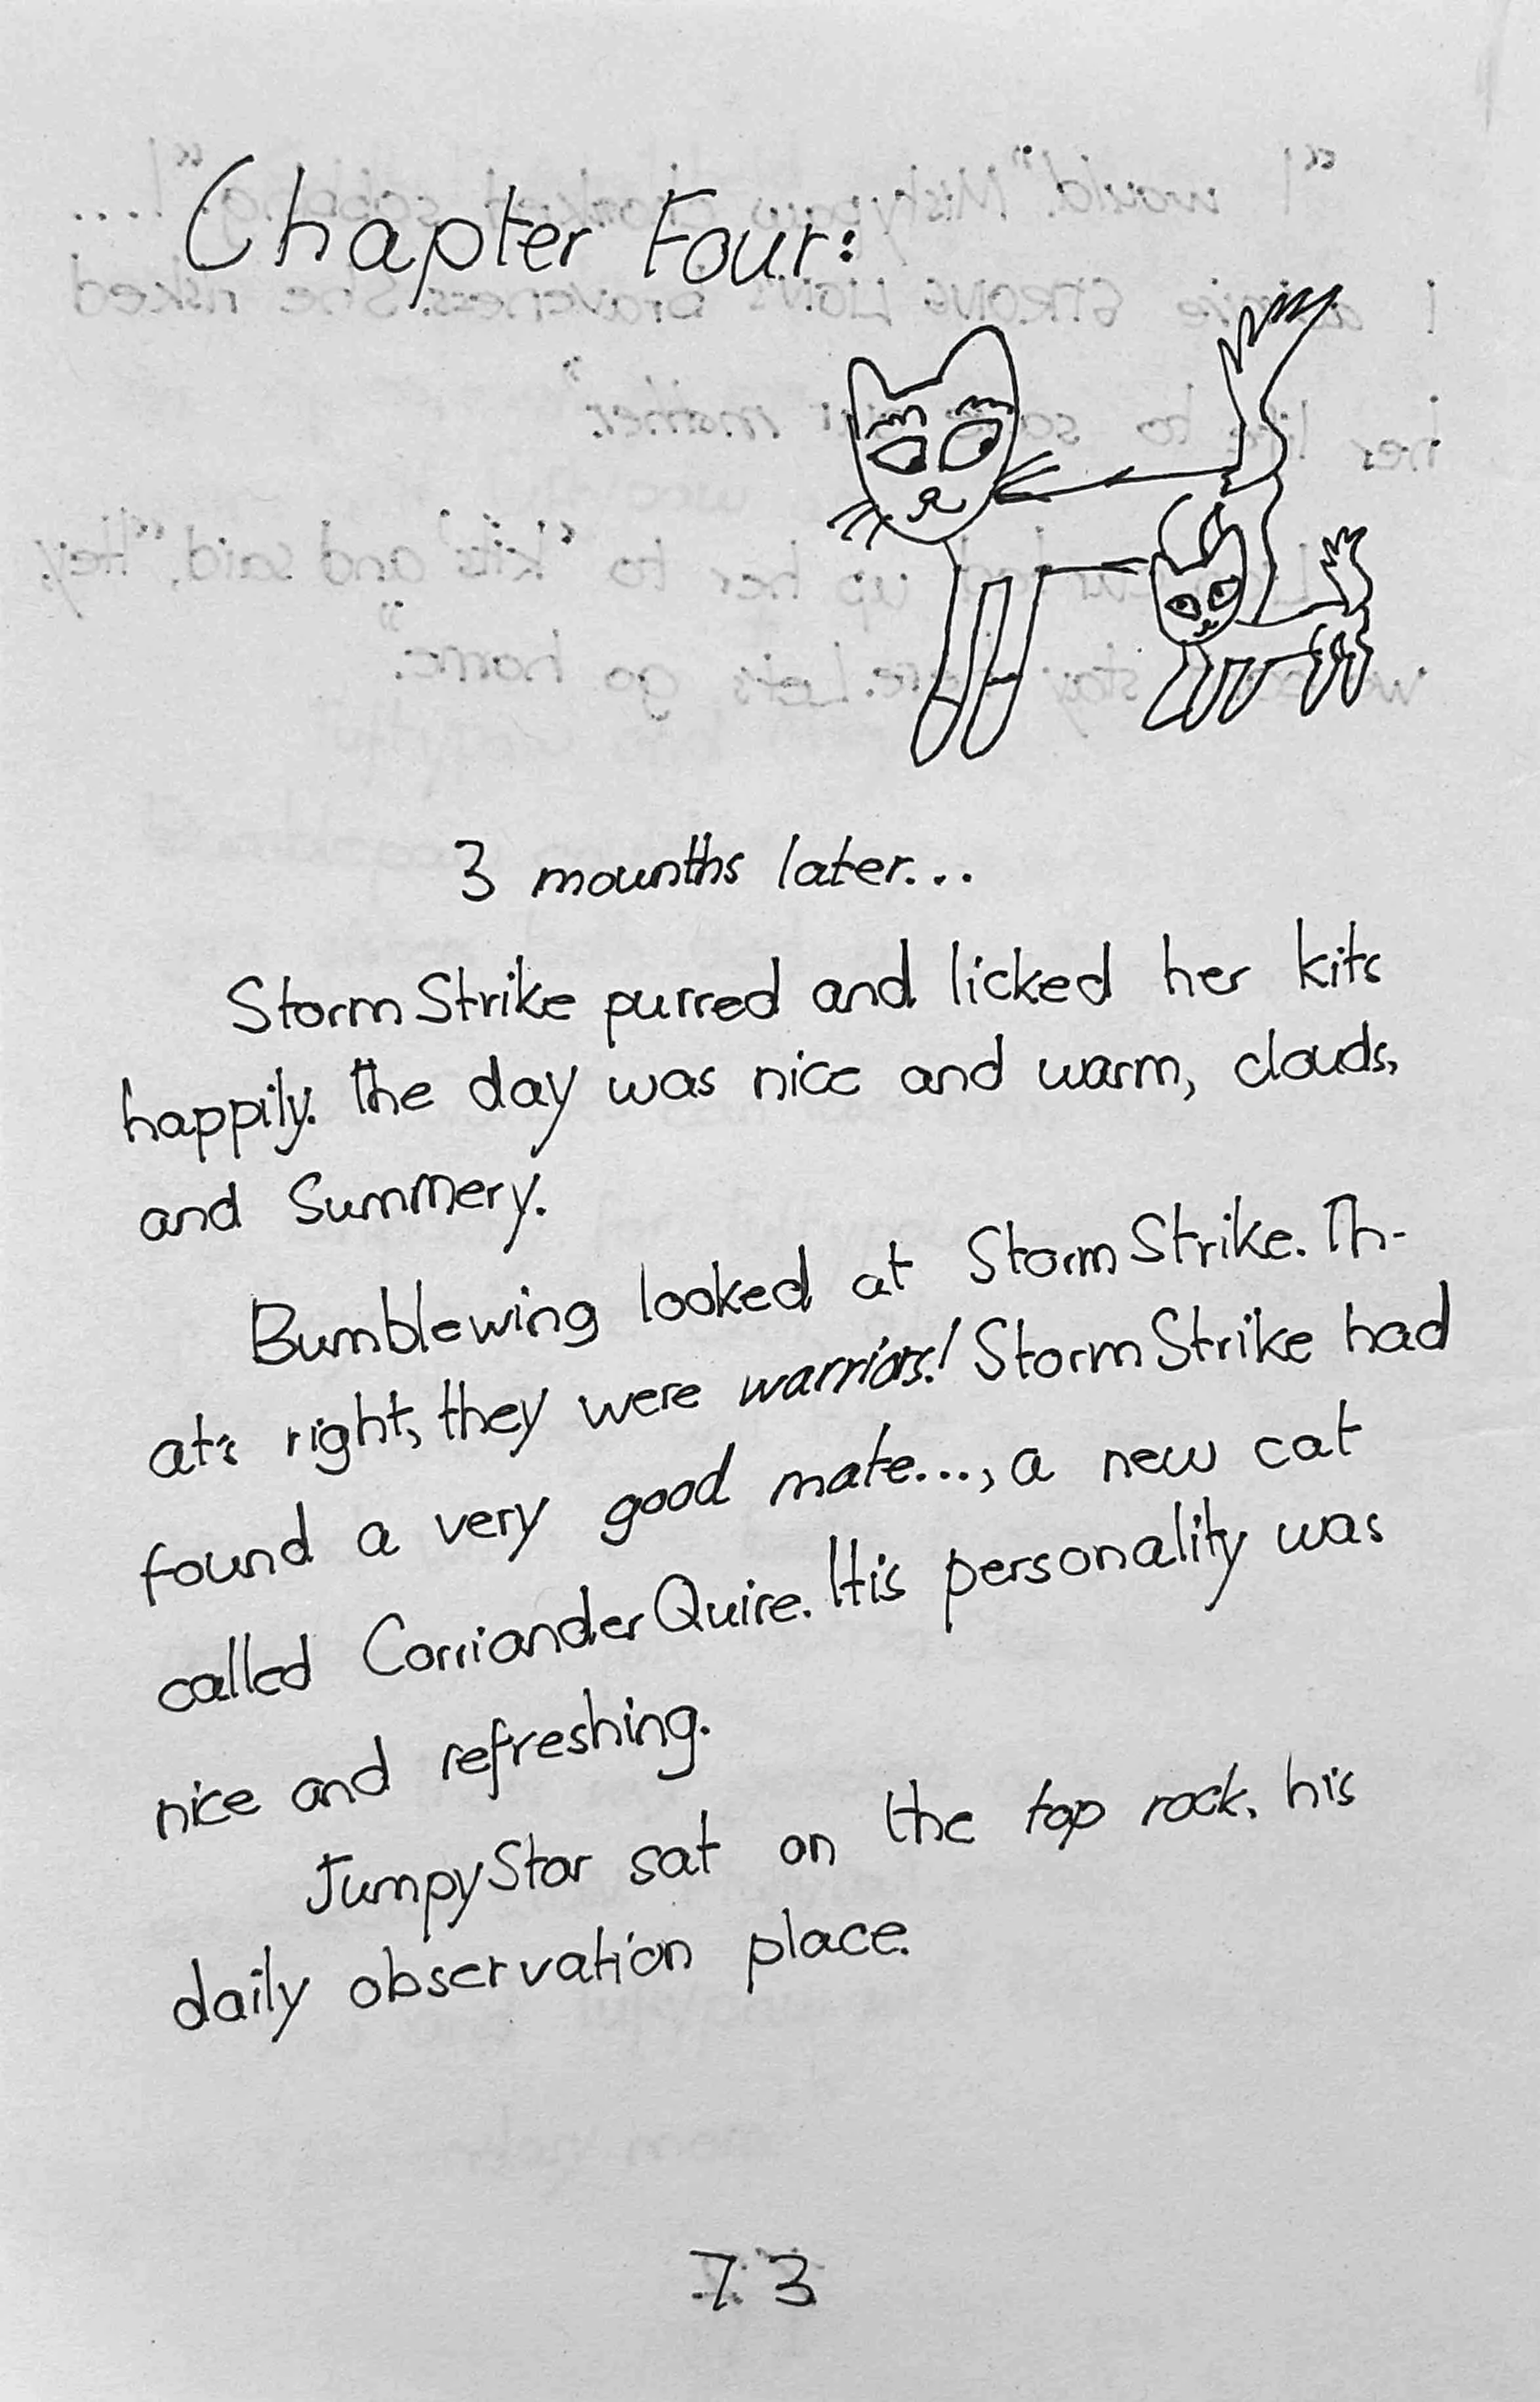 Chapter Four:
3 mounths later...
StormStrike purred and licked her kits
happily. the day was nice and warm, clouds,
and Summery.
Bumblewing looked at StormStrike. Th-
at's right, they were warriors! StormStrike had
found a very good mate..., a new cat
called CorrianderQuire. His personality was
nice and refreshing.
JumpyStar sat on the top rock, his
daily observation place.
73